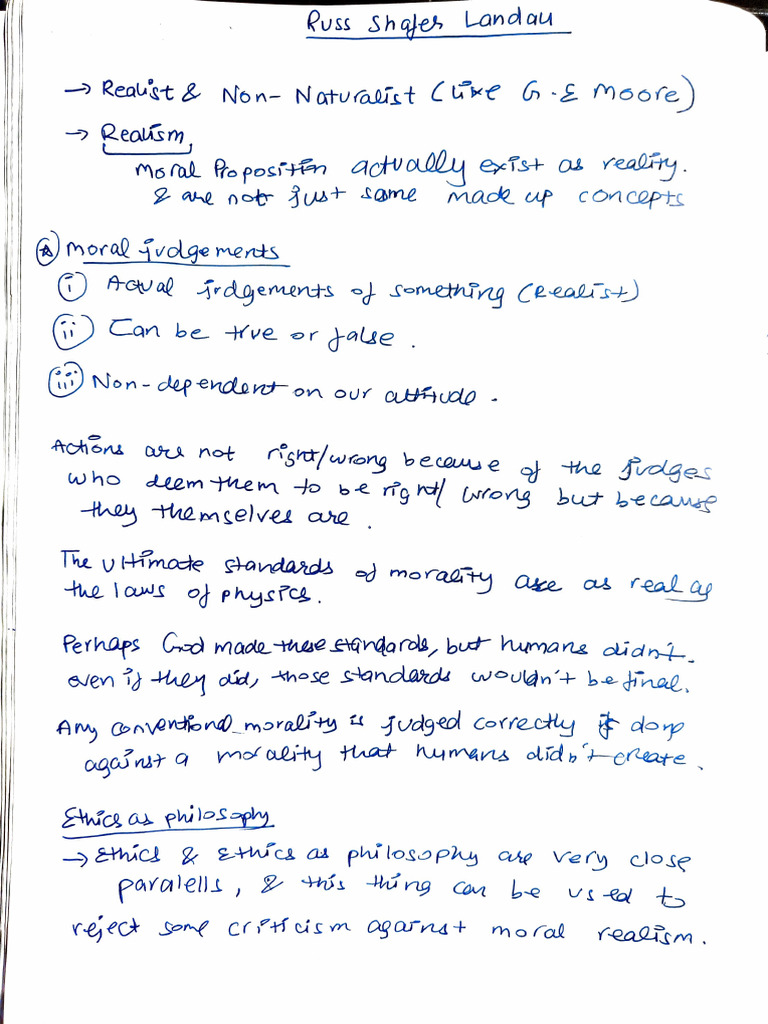 Russ Shafer Landau
→ Realist & Non-Naturalist (like G.E Moore)
→ Realism
Moral Proposition actually exist as reality.
& are not just some made up concepts
Moral judgements
i Actual judgements of something (Realist)
ii Can be true or false.
iii Non-dependent on our attitude.
Actions are not right/wrong because of the judges
who deem them to be right/wrong but because
they themselves are.
The ultimate standards of morality are as real as
the laws of physics.
Perhaps God made these standards, but humans didn't.
even if they did, those standards wouldn't be final.
Any conventional morality is judged correctly if done
against a morality that humans didn't create.
Ethics as philosophy
→ Ethics & Ethics as philosophy are very close
paralells, & this thing can be used to
reject some criticism against moral realism.